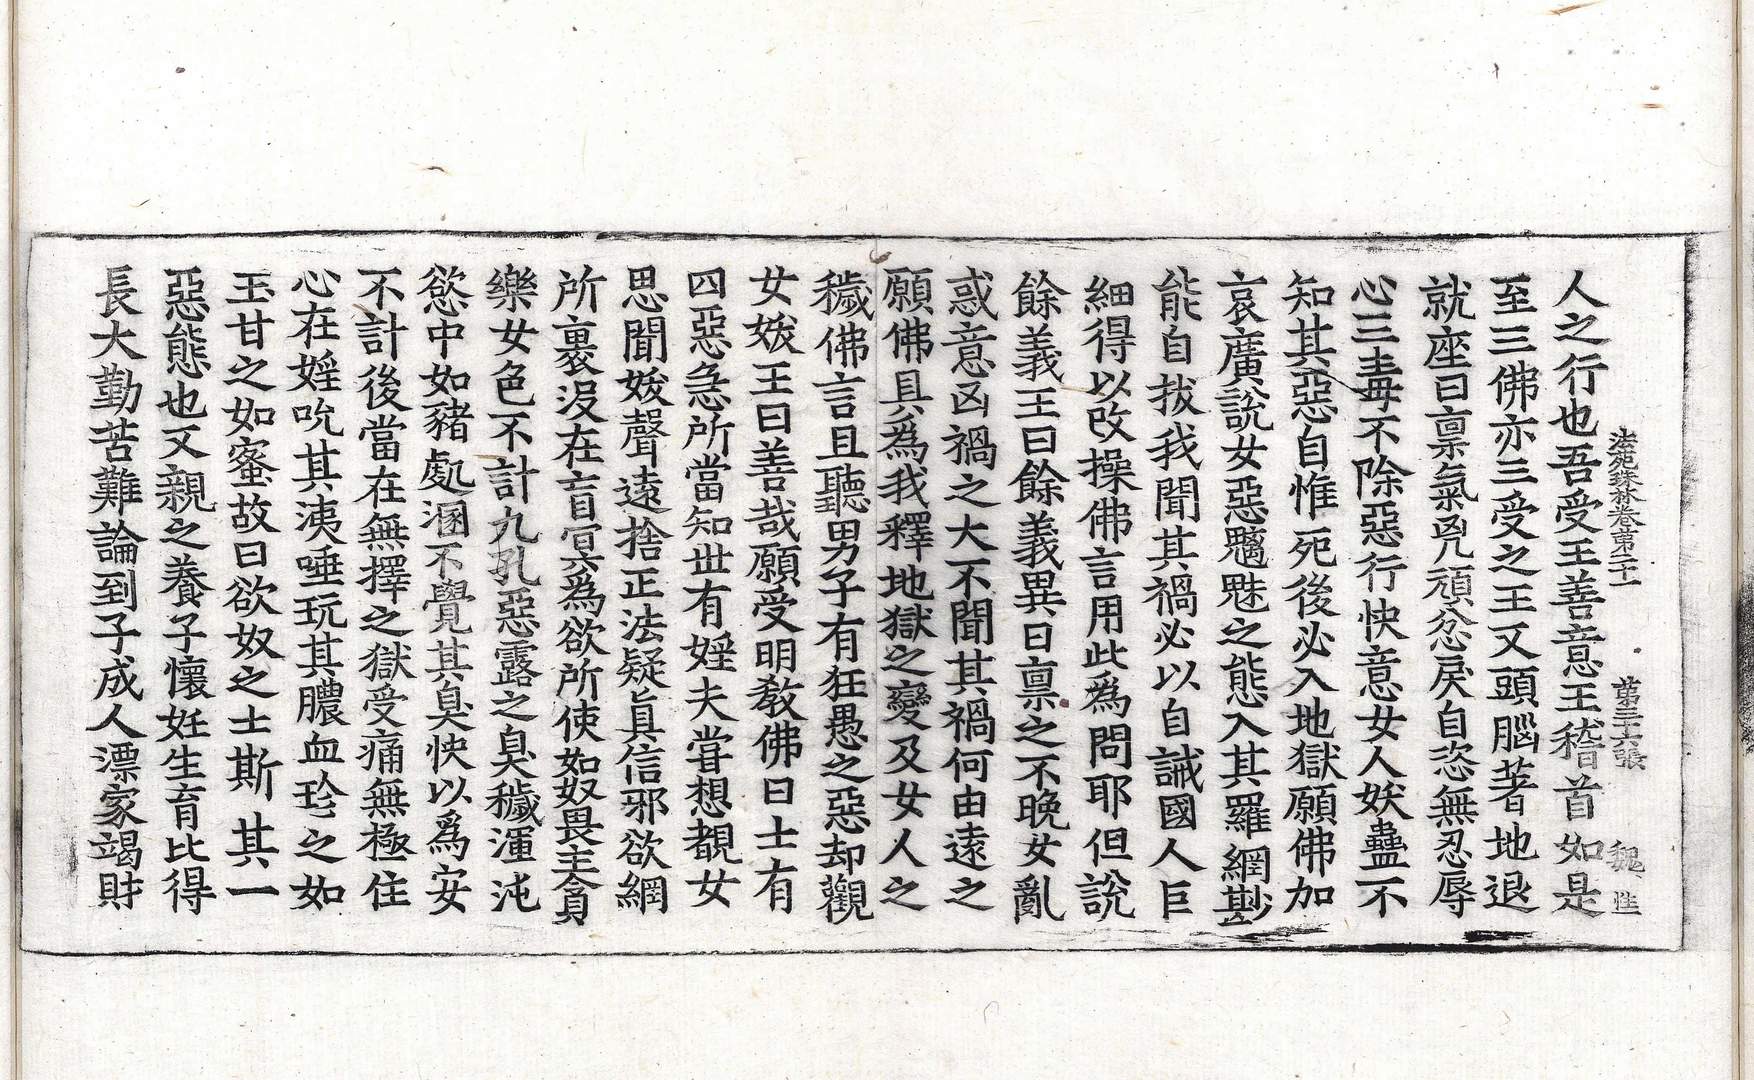 法苑珠林卷第二十一　第三十六張　魏
人之行也吾受王善意王稽首如是
至三佛亦三受之王又頭腦著地退
就座曰稟氣兇頑忿戾自恣無忍辱
心三毒不除惡行快意女人妖蠱不
知其惡自惟死後必入地獄願佛加
哀廣說女惡魑魅之態入其羅網尠
能自拔我聞其禍必以自誡國人巨
細得以改操佛言用此為問耶但說
餘義王曰餘義異日稟之不晚女亂
惑意凶禍之大不聞其禍何由遠之
願佛具為我釋地獄之變及女人之
穢佛言且聽男子有狂愚之惡却觀
女妭王曰善哉願受明教佛曰士有
四惡急所當知世有婬夫甞想覩女
思聞妭聲遠捨正法疑真信邪欲網
所裹沒在盲冥為欲所使如奴畏主貪
樂女色不計九孔惡露之臭穢渾沌
慾中如豬處溷不覺其臭快以為安
不計後當在無擇之獄受痛無極住
心在婬吮其洟唾玩其膿血珍之如
玉甘之如蜜故曰欲奴之士斯其一
惡態也又親之養子懷妊生育比得
長大勤苦難論到子成人漂家竭財